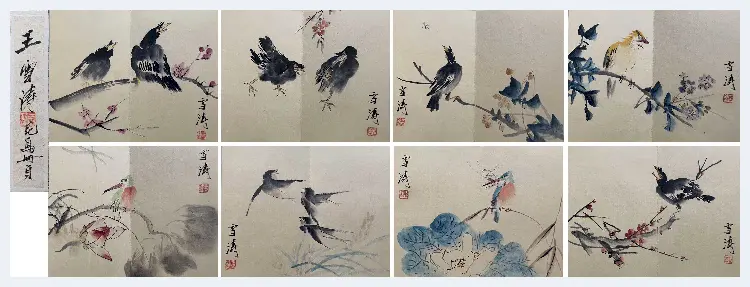 王雪濤花鳥冊頁
雪濤
雪濤
雪濤
雪濤
雪濤
雪濤
雪濤
雪濤